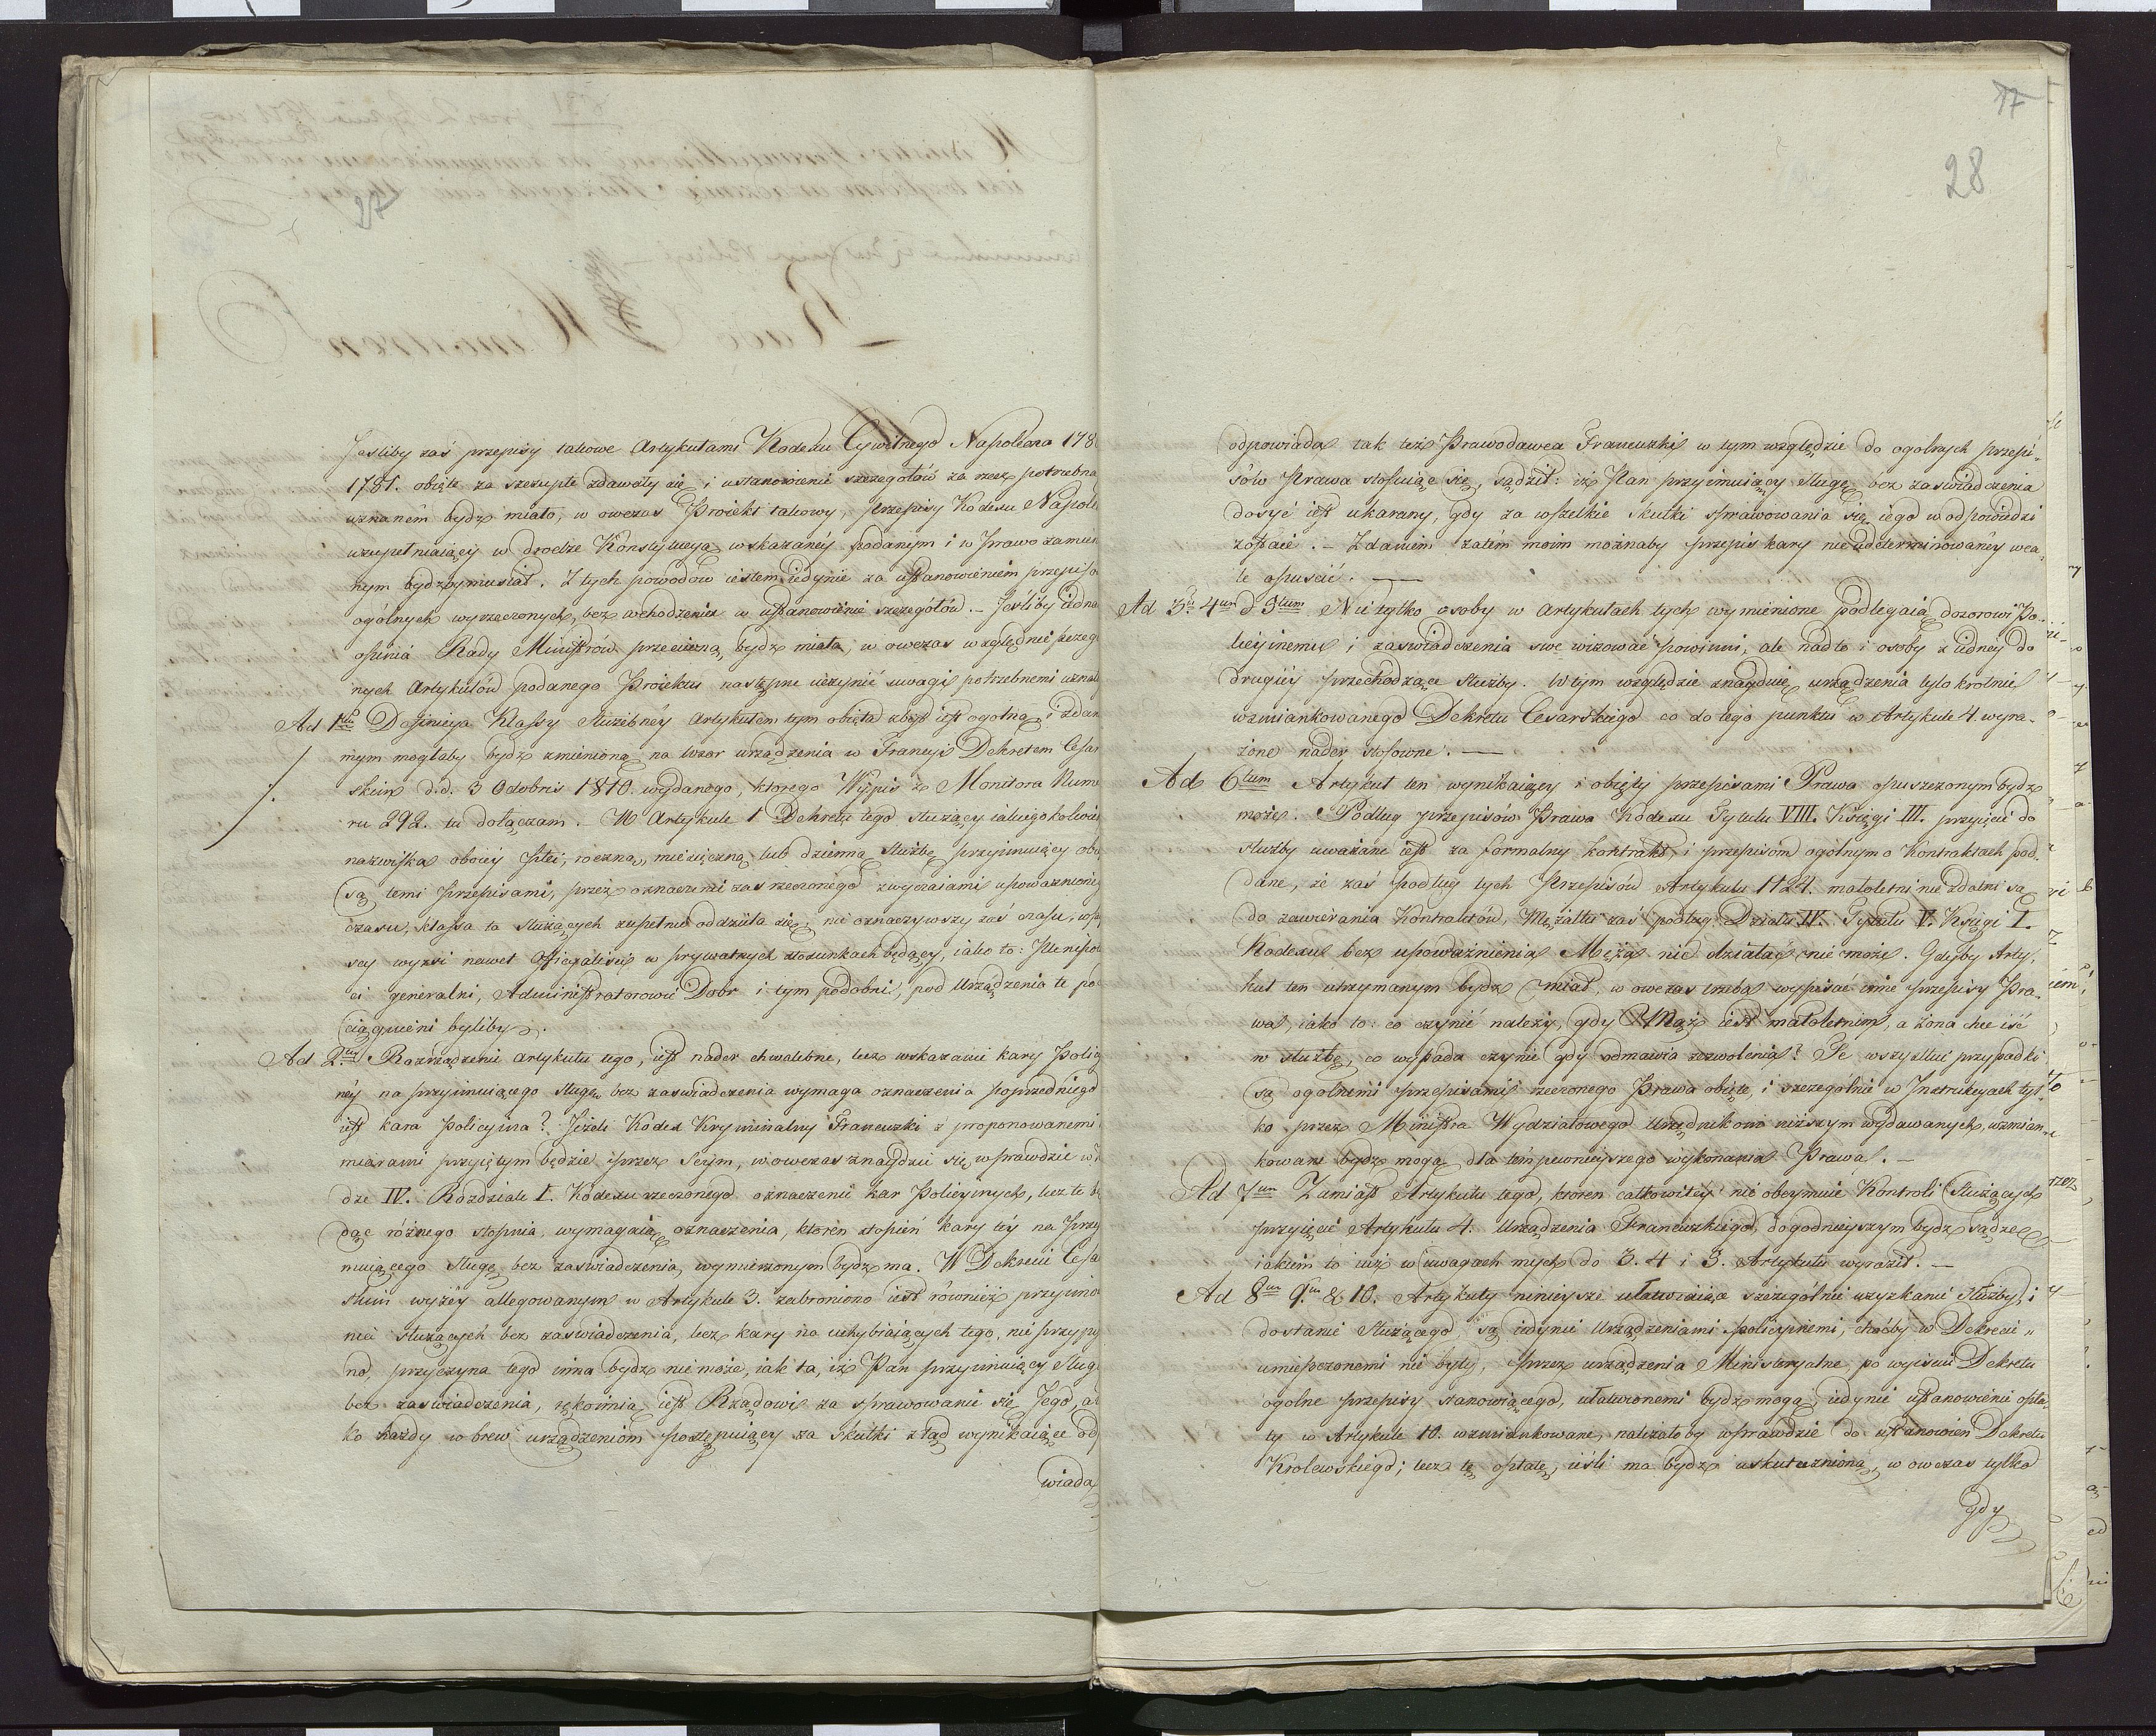 Jesliby zaś przepisy takowe Artykułami Kodexu Cywilnego Napoleona 178
1781. obięte za szczupłe zdawały się i ustanowienie szczegółów za rzecz potrzebną
uznaném bydz miało, w owczas Proiekt takowy, przepisy Kodexu Napole
uzupełniaiący w drodze Konstytucyą wskazanéy podanym i w Prawo zamie
nym bydzbymusiał. Z tych powodów iestem iedynie za ustanowieniem przepiso
ogólnych wyrzeczonych, bez wchodzenia w ustanowienie szczegółów. – Jeśliby iedna
opinia Rady Ministrów przeciwną bydz miała, w owczas względnie szczegó
nych Artykułów podanego Proiektu następne uczynić uwagi potrzebnemi uznał
Ad 1um Definicya Klassy służebnéy Artykułem tym obięta zbyt iest ogolną, i zdan
mym mogłaby bydz zmienioną na wzor urządzenia w Francyi Dekretem Cesar
skim d.d. 3 Octobris 1810. wydanego, ktorego Wypis z Monitora Nume
ru 292. tu dołączam. – W Artykule 1 Dekretu tego służący iakiegokolwiek
nazwiska oboiéy płci, roczną, miesięczną lub dzienną służbę przyimuiący obię
są temi przepisami, przez oznaczenie zaś rzeczonego zwyczaiami upoważnione
czasu, klassa ta służących zupełnie oddziela się, nie oznaczywszy zaś czasu, wsz
scy wyżsi nawet Officyaliści w prywatnych stosunkach będący, iako to: Plenipote
ci generalni, Administratorowie Dobr i tym podobni, pod Urządzenia te po
ciągnieni byliby.
Ad 2um Rozrządzenie artykułu tego, iest nader chwalebne, lecz wskazanie kary Policy
néy na przyimuiącego sługę bez zaswiadczenia wymaga oznaczenia poprzedniego
iest kara policyina? Jeżeli Kodex Kryminalny Francuzki z proponowanemi
miarami przyiętym będzie przez Seym, w owczas znaydzie się wprawdzie w
dze IV. Rozdziale I. Kodexu rzeczonego oznaczenie kar Policyinych, lecz te b
dąc różnego stopnia, wymagaią oznaczenia, ktoren stopień kary téy na przy
muiącego sługę bez zaswiadczenia, wymierzonym bydz ma. W Dekrecie Cesa
skim wyżéy allegowanym w Artykule 3. zabroniono iest rownież przyimo
nie służących bez zaswiadczenia, lecz kary na uchybiaiących tego, nie przypi
no, przyczyna tego inna bydz nie może, iak ta, iż Pan przyimuiący sług
bez zaswiadczenia, rękoimią iest Rządowi za sprawowanie się Jego, a
ko każdy wbrew urządzeniom postępuiący za skutki ztąd wynikaiące od
wiada
27
17
28
odpowiada tak też Prawodawca Francuzki w tym względzie do ogolnych przepi-
sów Prawa stosuiąc się, sądził: iż Pan przyimuiący sługę bez zaswiadczenia
dosyć iest ukarany, gdy za wszelkie skutki sprawowania się iego w odpowiedzi
zostaie. – Zdaniem zatém moim możnaby przepis kary nieudeterminowanéy wca-
le opuścić. –
Ad 3. 4um & 5tum Nie tylko osoby w Artykułach tych wymienione podlegaią dozorowi Po-
licyinemu i zaswiadczenia swe wizować powinni, ale nadto i osoby z iednéy do
drugiéy przechodzące służby. W tym względzie znayduię urządzenia tylokrotnie
wzmiankowanego Dekretu Cesarskiego co do tego punktu w Artykule 4. wyra-
żone nader stosowne. –
Ad 6tum Artykuł ten wynikaiący i obięty przepisami Prawa opuszczonym bydz
może. Podług przepisów Prawa Kodexu Tytułu VIII. Księgi III. przyięcie do
służby uważane iest za formalny kontrakt, i przepisom ogólnym o Kontraktach pod-
dane, że zaś podług tych Przepisów Artykułu 1124. małoletni nie zdatni są
do zawierania Kontraktów, Mężatki zaś podług Działu IV. Tytułu V. Księgi I.
Kodexu bez upoważnienia Męża nic działać nie może. Gdyby Arty-
kuł ten utrzymanym bydz miał, w owczas trzeba wypisać inne przepisy Pra-
wa, iako to: co czynić należy, gdy Mąż iest małoletnim, a żona chce iść
w służbę, co wypada czynić gdy odmawia zezwolenia? Te wszystkie przypadki
są ogolnemi przepisami rzeczonego Prawa obięte, i szczególnie w Instrukcyach tyl-
ko przez Ministra Wydziałowego Urzędnikom niższym wydawanych, wzmian-
kowane bydz mogą dla tém pewnieyszego wykonania Prawa. –
Ad 7um Zamiast Artykułu tego, ktoren całkowitey nie obeymuie Kontroli służących
przyięcie Artykułu 4. Urządzenia Francuzkiego, dogodnieyszym bydz sądzę
iakiem to iuż w uwagach mych do 3. 4 i 5. Artykułu wyraził. –
Ad 8um 9um & 10. Artykuły nineysze ułatwiaiące szczególnie uzyskanie służby, i
dostanie służącego, są iedynie Urządzeniami policyinemi, choćby w Dekrecie
umieszczonemi nie były, przez urządzenia Ministeryalne, po wyiściu Dekretu
ogolne przepisy stanowiącego, ułatwionemi bydz mogą, iedynie ustanowienie opła-
ty w Artykule 10. wzmiankowane, należałoby wprawdzie do ustanowień Dekretu
Krolewskiego; lecz tę opłatę, ieśli ma bydz uskutecznioną, w owczas tylko
gdy